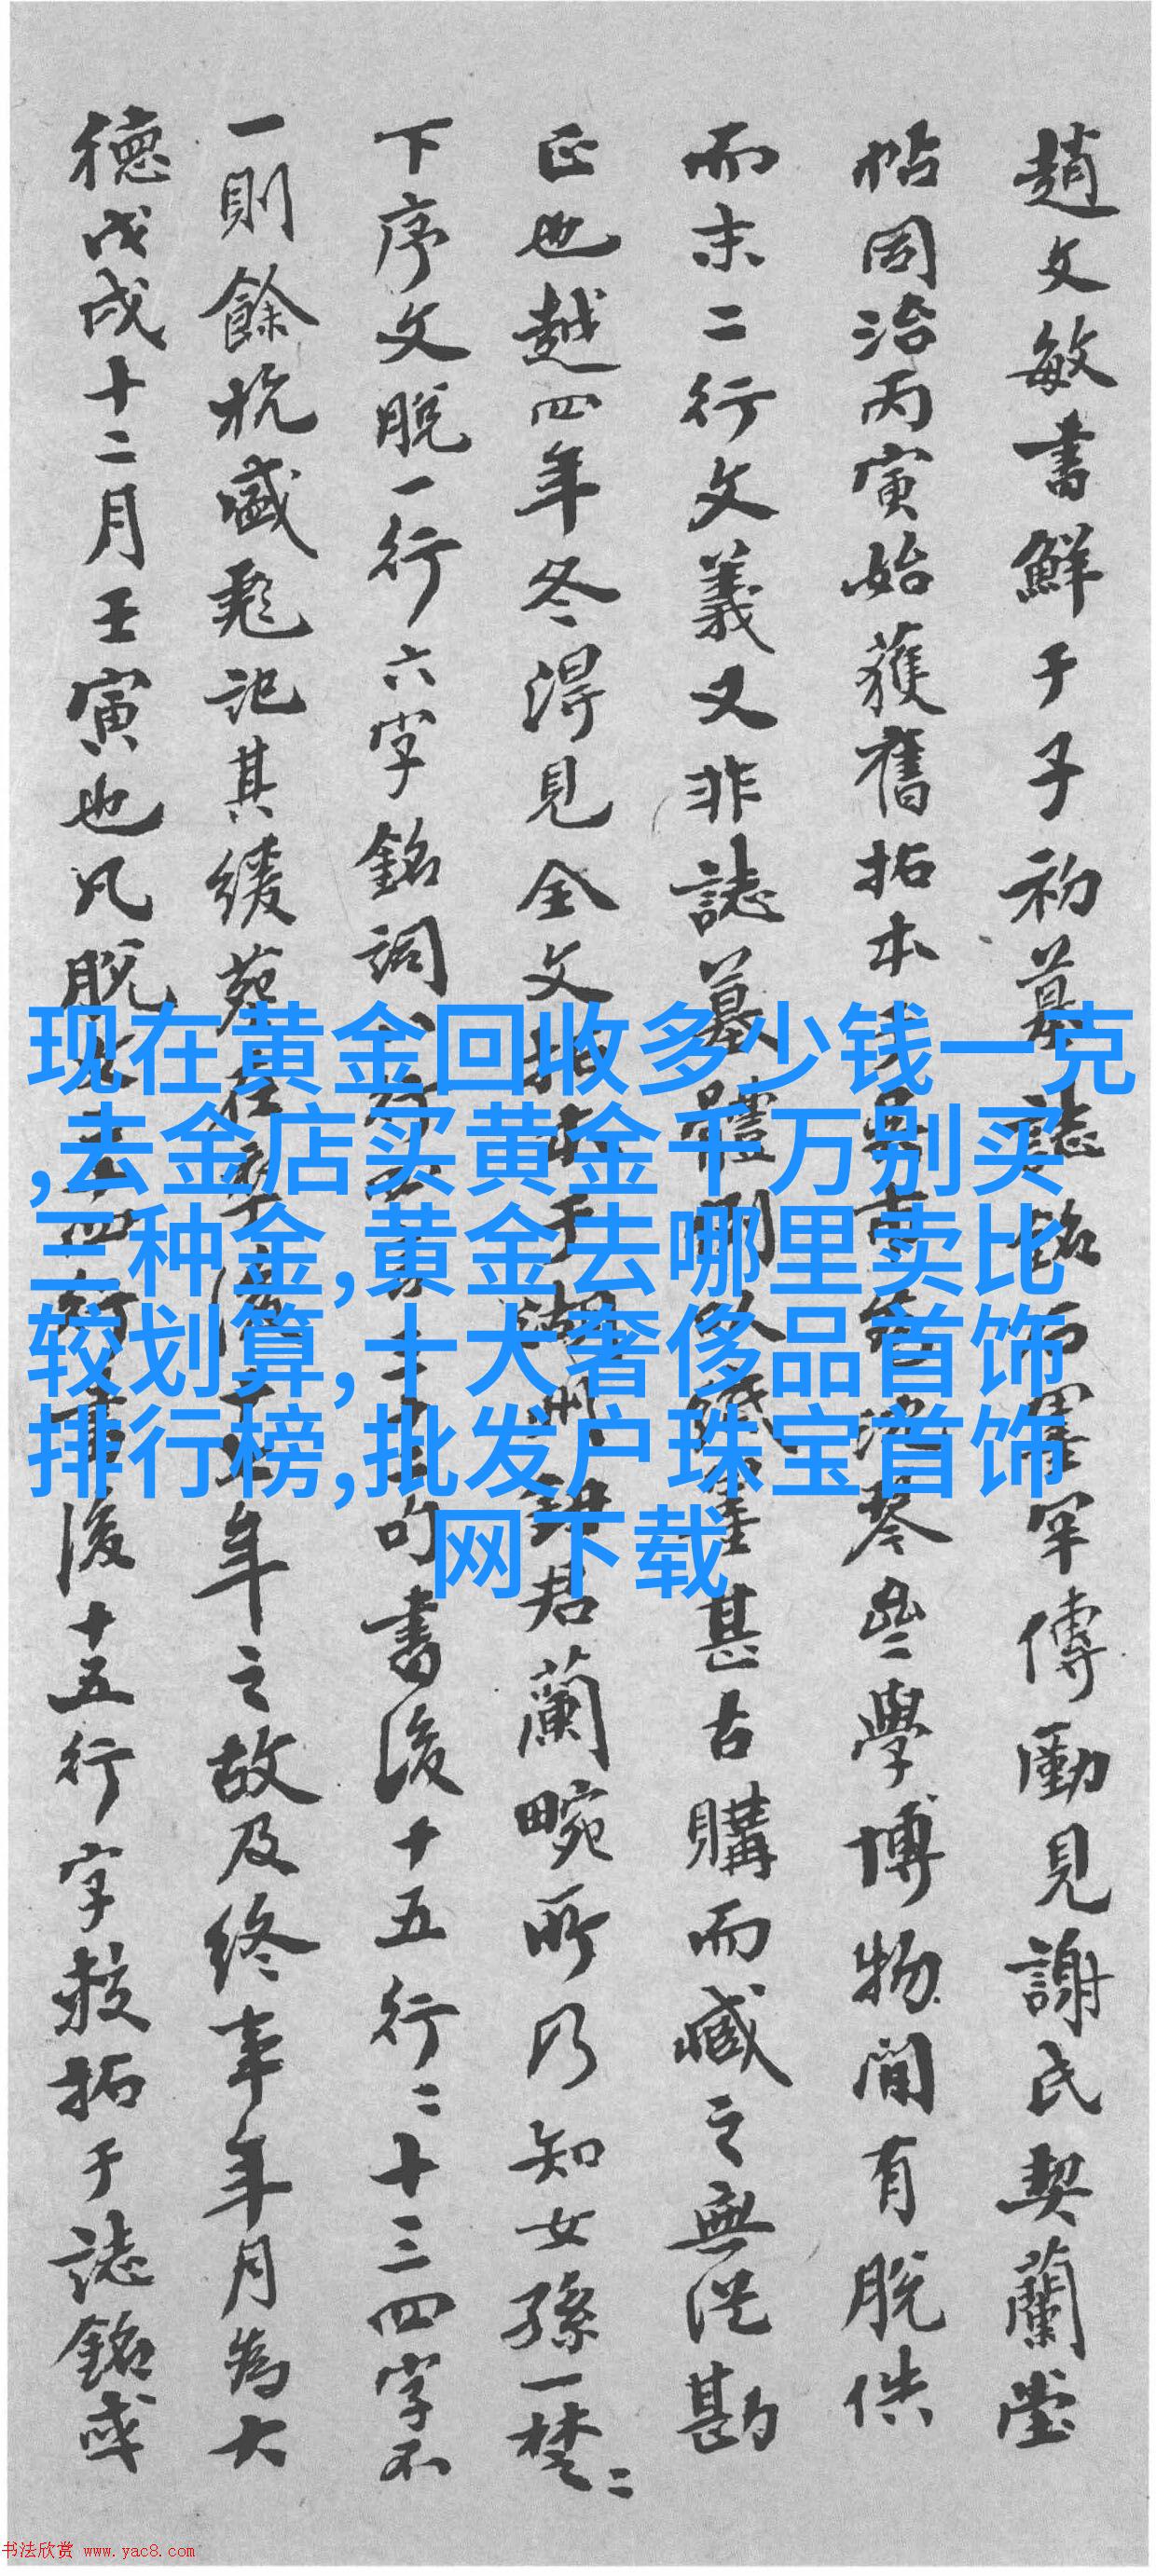 趙文敏書鮮于子初墓誌銘石墨罕傳勵見謝氏契蘭堂
帖同治丙寅始獲舊拓本琴學博物間有脫佚
而末二行文義又非誌墓體甚古購而藏之無從勘
正也越四年冬得見全文拓本于湖州君蘭畹所乃知女孫一楚二
下序文脫一行六字銘詞書後十五行二十三四字不
一則餘杭盛彪記其緩葬年之故及終事年月為大
德戊戌十二月壬寅也凡脫書後十五行字救拓于誌銘或
现在黄金回收多少钱一克
,去金店买黄金千万别买
三种金,黄金去哪里卖比
较划算,十大奢侈品首饰
排行榜,批发户珠宝首饰
网下载
书法欣赏 www.yac8.com